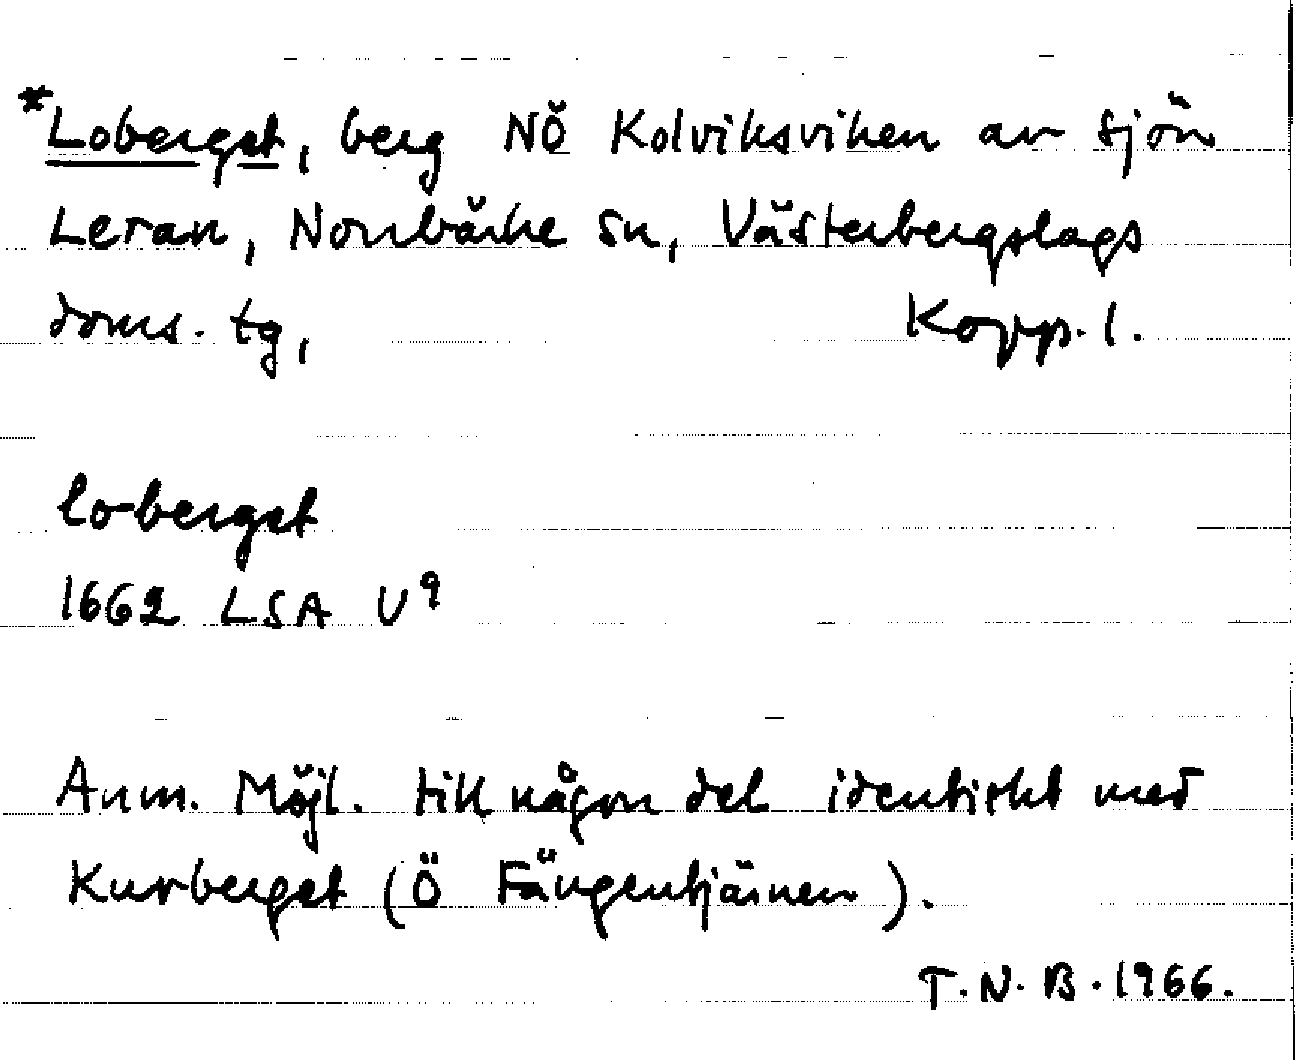 *Loberget, berg NÖ Kolviksviken av sjön
Leran, Norrbärke sn, Västerbergslags
doms. tg, Kopp. l.
lo-berget
1662 LSA U9
Anm. Möjl. till någon del identiskt med
Kurberget (Ö Fängentjärnen).
T.N.B. 1966.